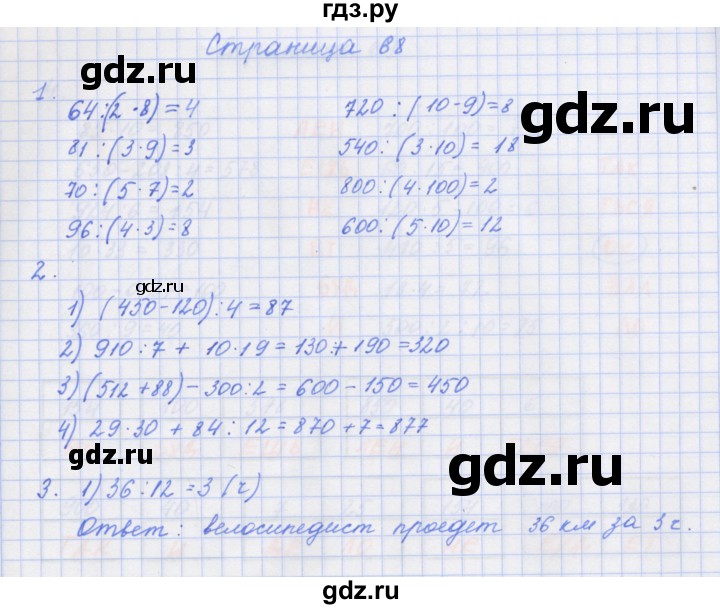 гдз.ру
Страница 88
gdz.ru
gdz.ru
1.
64:(2·8)=4
720:(10·9)=8
81:(3·9)=3
540:(3·10)=18
70:(5·7)=2
800:(4·100)=2
96:(4·3)=8
600:(5·10)=12
2.
gdz.ru
1) (450-120):4=87
2) 910:7+10·19=130+190=320
3) (512+88)-300:2=600-150=450
4) 29·30+84:12=870+7=877
gdz.ru
gdz.ru
3. 1) 36:12=3(ч)
Ответ: велосипедист проедет 36 км за 3 ч.
gdz.ru